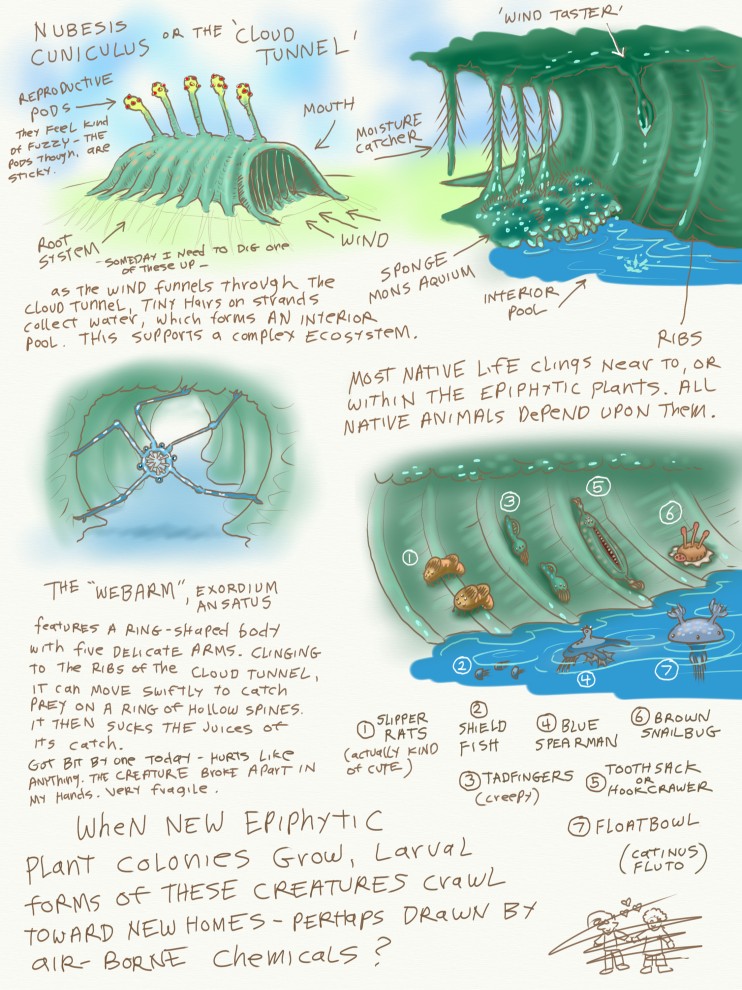 NUBESIS CUNICULUS OR THE 'CLOUD TUNNEL'
REPRODUCTIVE
PODS
THEY FEEL KIND
OF FUZZY - THE
PODS THOUGH, ARE
STICKY.
MOUTH
ROOT
SYSTEM
- SOMEDAY I NEED TO DIG ONE
OF THESE UP -
WIND
'WIND TASTER'
MOISTURE
CATCHER
SPONGE
MONS AQUIUM
INTERIOR
POOL
RIBS
AS THE WIND FUNNELS THROUGH THE
CLOUD TUNNEL, TINY HAIRS ON STRANDS
COLLECT WATER, WHICH FORMS AN INTERIOR
POOL. THIS SUPPORTS A COMPLEX ECOSYSTEM.
MOST NATIVE LIFE CLINGS NEAR TO, OR
WITHIN THE EPIPHYTIC PLANTS. ALL
NATIVE ANIMALS DEPEND UPON THEM.
THE "WEBARM", EXORDIUM
ANSATUS
FEATURES A RING-SHAPED BODY
WITH FIVE DELICATE ARMS. CLINGING
TO THE RIBS OF THE CLOUD TUNNEL,
IT CAN MOVE SWIFTLY TO CATCH
PREY ON A RING OF HOLLOW SPINES.
IT THEN SUCKS THE JUICES OF
ITS CATCH.
GOT BIT BY ONE TODAY - HURTS LIKE
ANYTHING. THE CREATURE BROKE APART IN
MY HANDS. VERY FRAGILE.
1
2
3
4
5
6
7
1 SLIPPER
RATS
(ACTUALLY KIND
OF CUTE)
2
SHIELD
FISH
3 TADFINGERS
(CREEPY)
4 BLUE
SPEARMAN
5 TOOTHSACK
OR
HOOKCRAWER
6 BROWN
SNAILBUG
7 FLOATBOWL
(CATINUS
FLUTO)
WHEN NEW EPIPHYTIC
PLANT COLONIES GROW, LARVAL
FORMS OF THESE CREATURES CRAWL
TOWARD NEW HOMES - PERHAPS DRAWN BY
AIR-BORNE CHEMICALS?